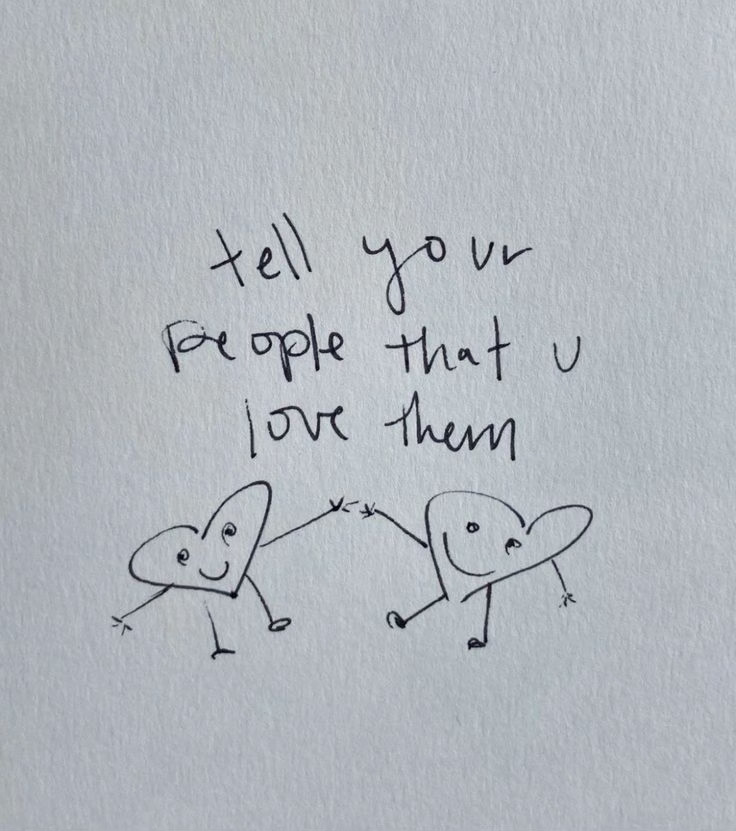 tell your
people that u
love them